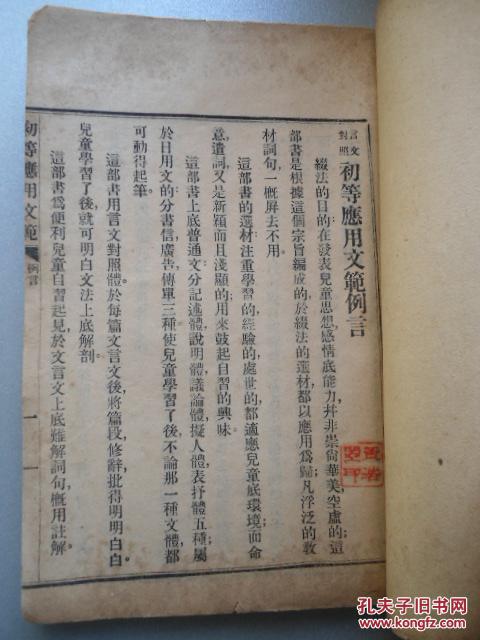 言文對照 初等應用文範例言
綴法的目的在發表兒童思想感情底能力,幷非崇尙華美空虛的;這
部書是根據這個宗旨編成的於綴法的選材都以應用爲歸凡浮泛的敎
材詞句,一槪屏去不用。
這部書的選材注重學習的,經驗的,處世的,都適應兒童底環境;而命
意,遣詞,又是新穎而且淺顯的,用來鼓起自習的興味。
這部書上底普通文分記述體,說明體,議論體,擬人體,表抒體五種;屬
於日用文的分書信,廣告,傳單三種,使兒童學習了後,不論那一種文體,都
可動得起筆。
這部書用言文對照體。於每篇文言文後,將篇段,修辭,批得明明白白。
兒童學習了後,就可明白文法上底解剖。
這部書爲便利兒童自習起見,於文言文上底難解詞句,槪用註解。
初等應用文範
例言
一
孔夫子旧书网
www.kongfz.com